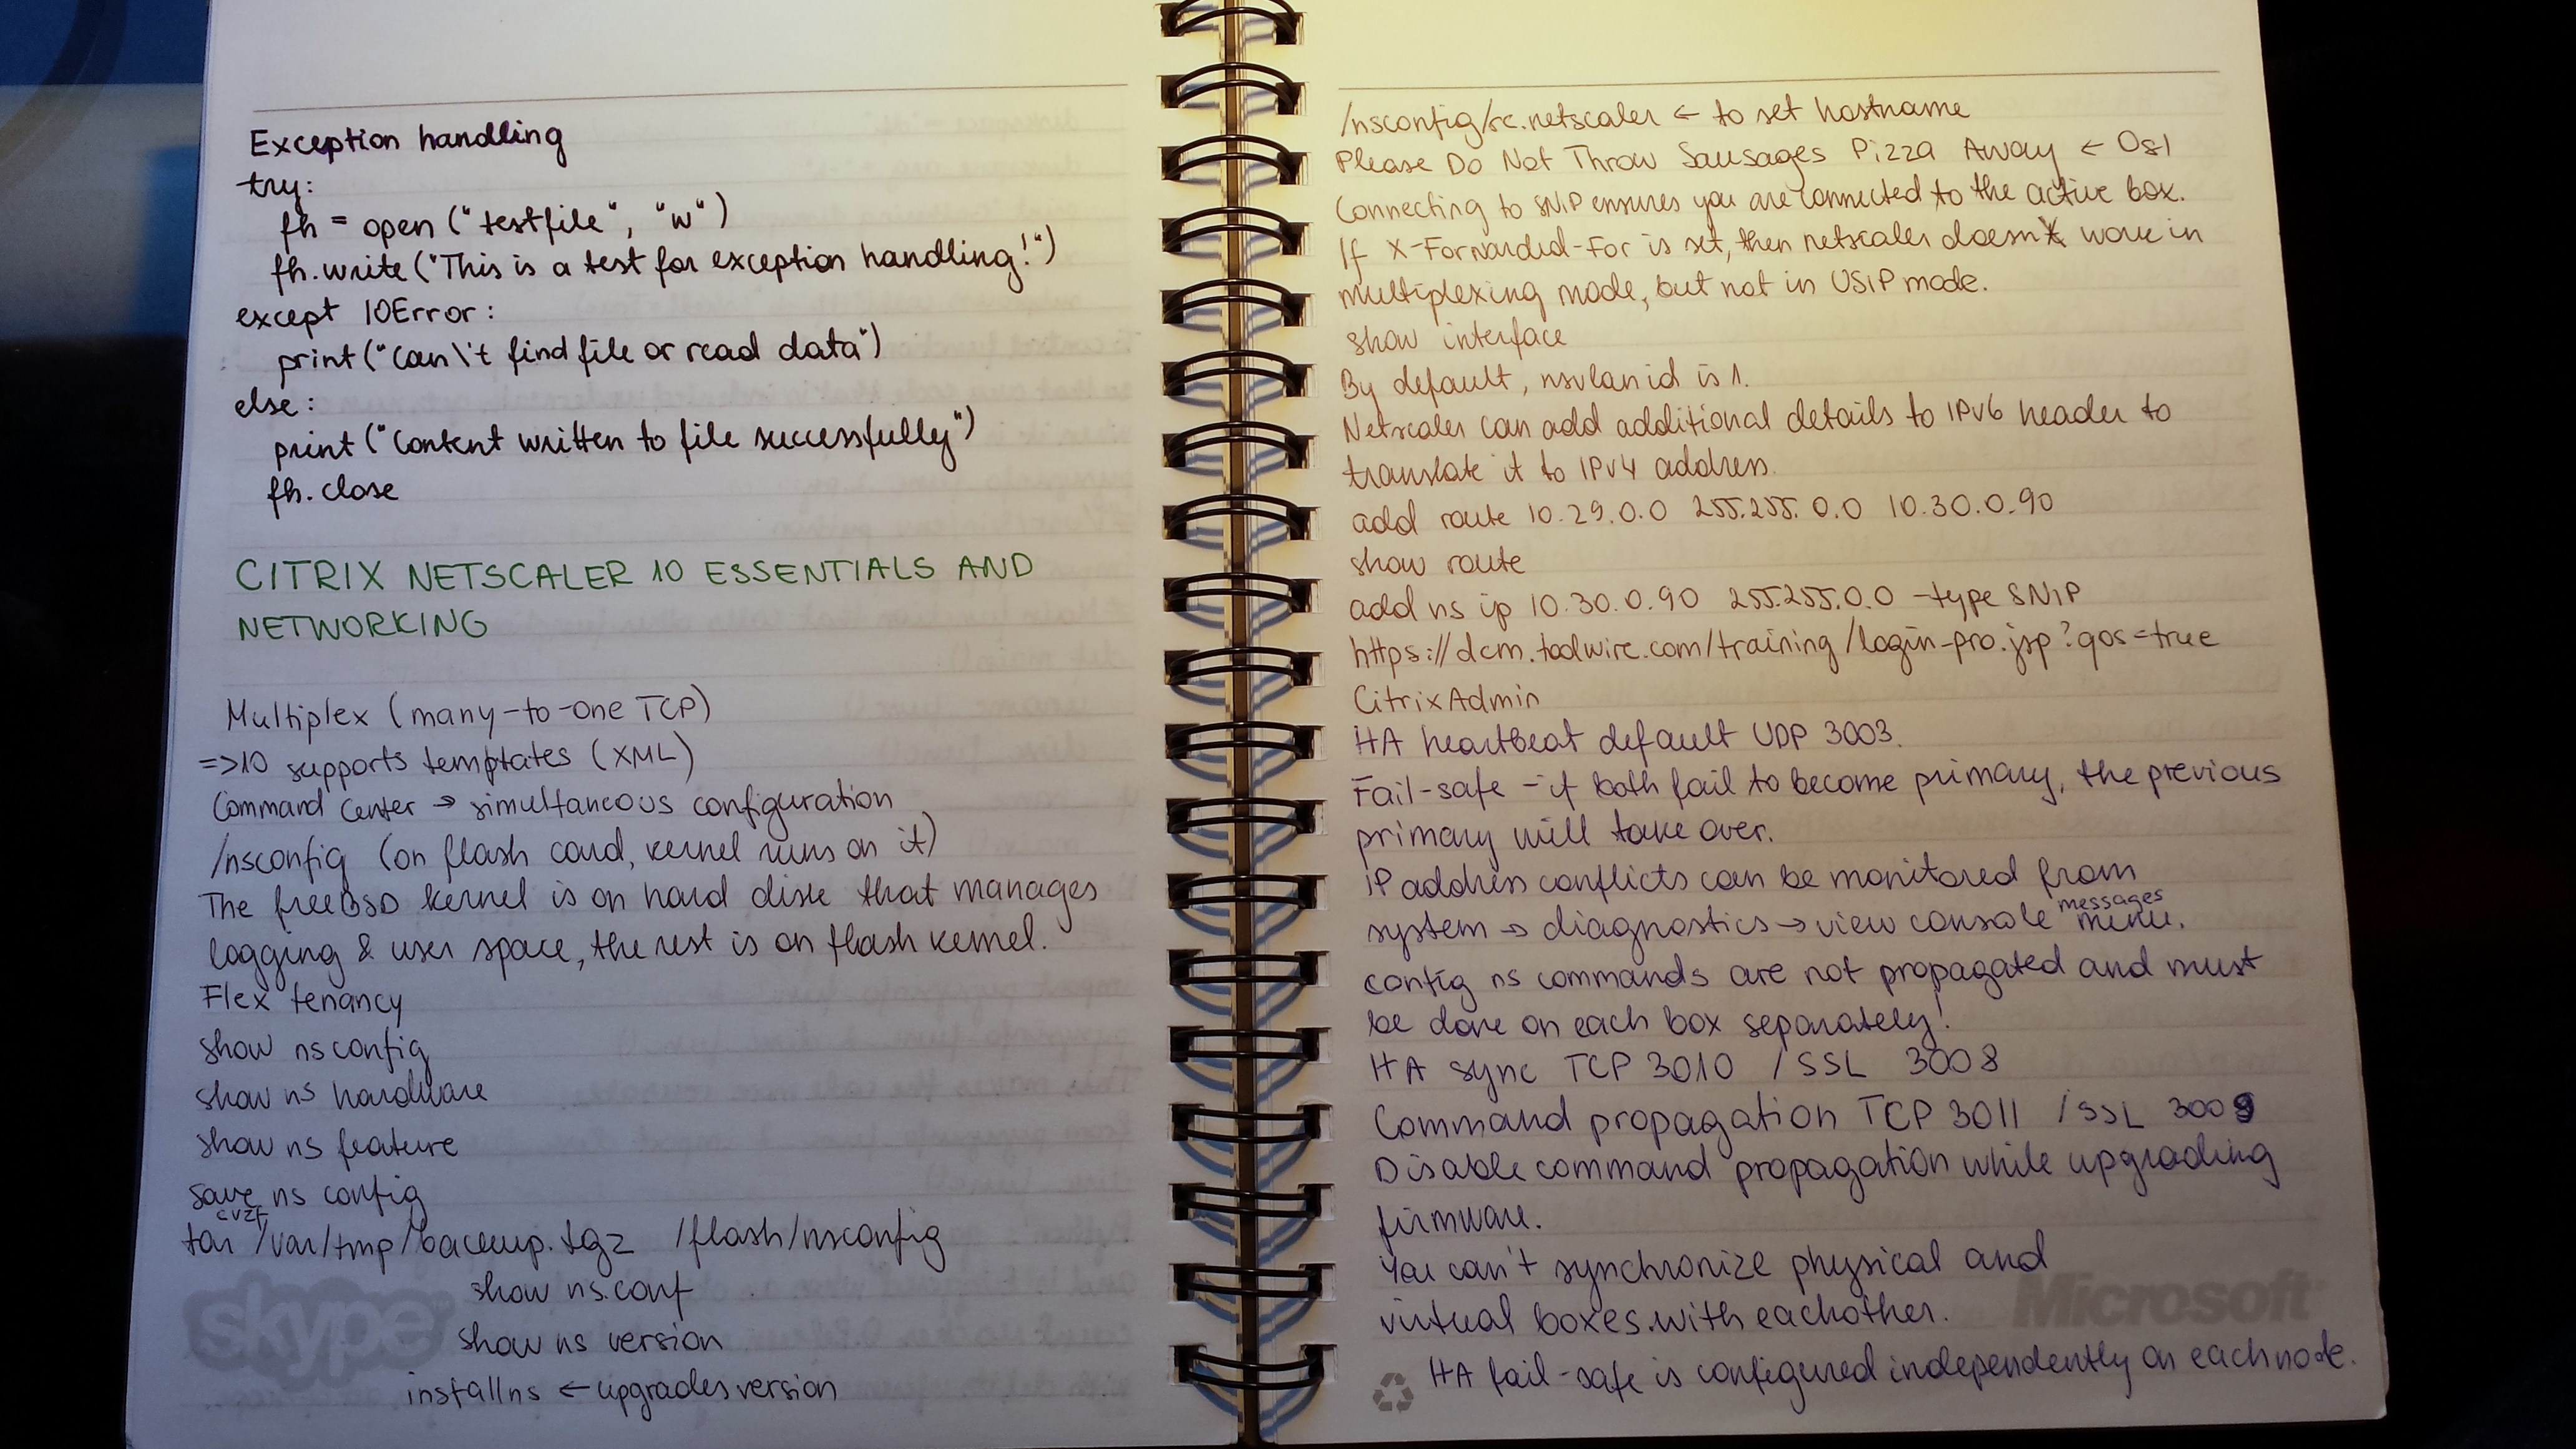 Exception handling
try:
fh = open ("testfile", "w")
fh.write ("This is a test for exception handling!")
except IOError:
print ("Can\'t find file or read data")
else:
print ("Content written to file successfully")
fh.close
CITRIX NETSCALER 10 ESSENTIALS AND
NETWORKING
Multiplex (many-to-one TCP)
=>10 supports templates (XML)
Command Center → simultaneous configuration
/nsconfig (on flash card, kernel runs on it)
The freeBSD kernel is on hard disk that manages
logging & user space, the rest is on flash kernel.
Flex tenancy
show ns config
show ns hardware
show ns feature
save ns config
cvzf
tar /var/tmp/backup.tgz /flash/nsconfig
show ns.conf
show ns version
installns ← upgrades version
skype
/nsconfig/rc.netscaler ← to set hostname
Please Do Not Throw Sausages Pizza Away ← OSI
Connecting to SNIP ensures you are connected to the active box.
If X-Forwarded-For is set, then netscaler doesn't work in
multiplexing mode, but not in USIP mode.
show interface
By default, nsvlan id is 1.
Netscaler can add additional details to IPv6 header to
translate it to IPv4 address.
add route 10.29.0.0 255.255.0.0 10.30.0.90
show route
add ns ip 10.30.0.90 255.255.0.0 -type SNIP
https://dcm.toolwire.com/training/login-pro.jsp?qos=true
CitrixAdmin
HA heartbeat default UDP 3003.
Fail-safe - if both fail to become primary, the previous
primary will take over.
IP address conflicts can be monitored from
messages
system → diagnostics → view console menu.
config ns commands are not propagated and must
be done on each box separately!
HA sync TCP 3010 / SSL 3008
Command propagation TCP 3011 / SSL 3009
Disable command propagation while upgrading
firmware.
You can't synchronize physical and
virtual boxes with eachother.
Microsoft
HA fail-safe is configured independently on each node.